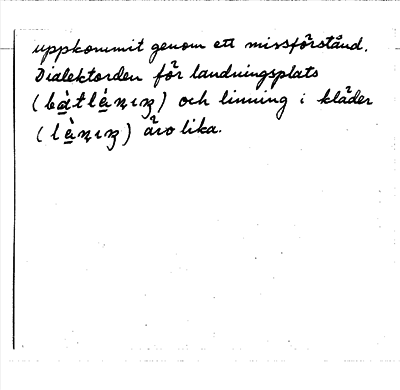 uppkommit genom ett missförstånd.
Dialektorden för landningsplats
(bàtlànıŋ) och linning i kläder
(lànıŋ) äro lika.